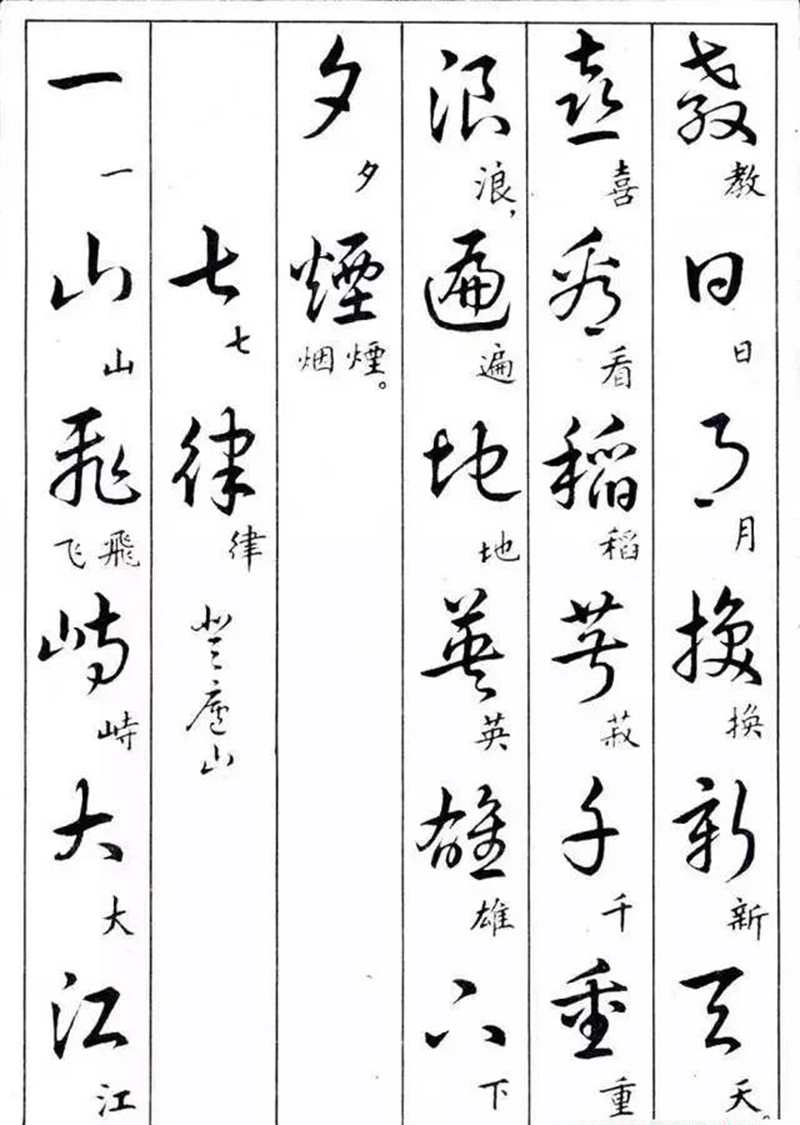 教日月換新天
教日月换新天。
喜看稻菽千重
喜看稻菽千重
浪遍地英雄下
浪，遍地英雄下
夕煙
夕煙。烟
七律
七律
登廬山
一山飛峙大江
一山飛飞峙大江